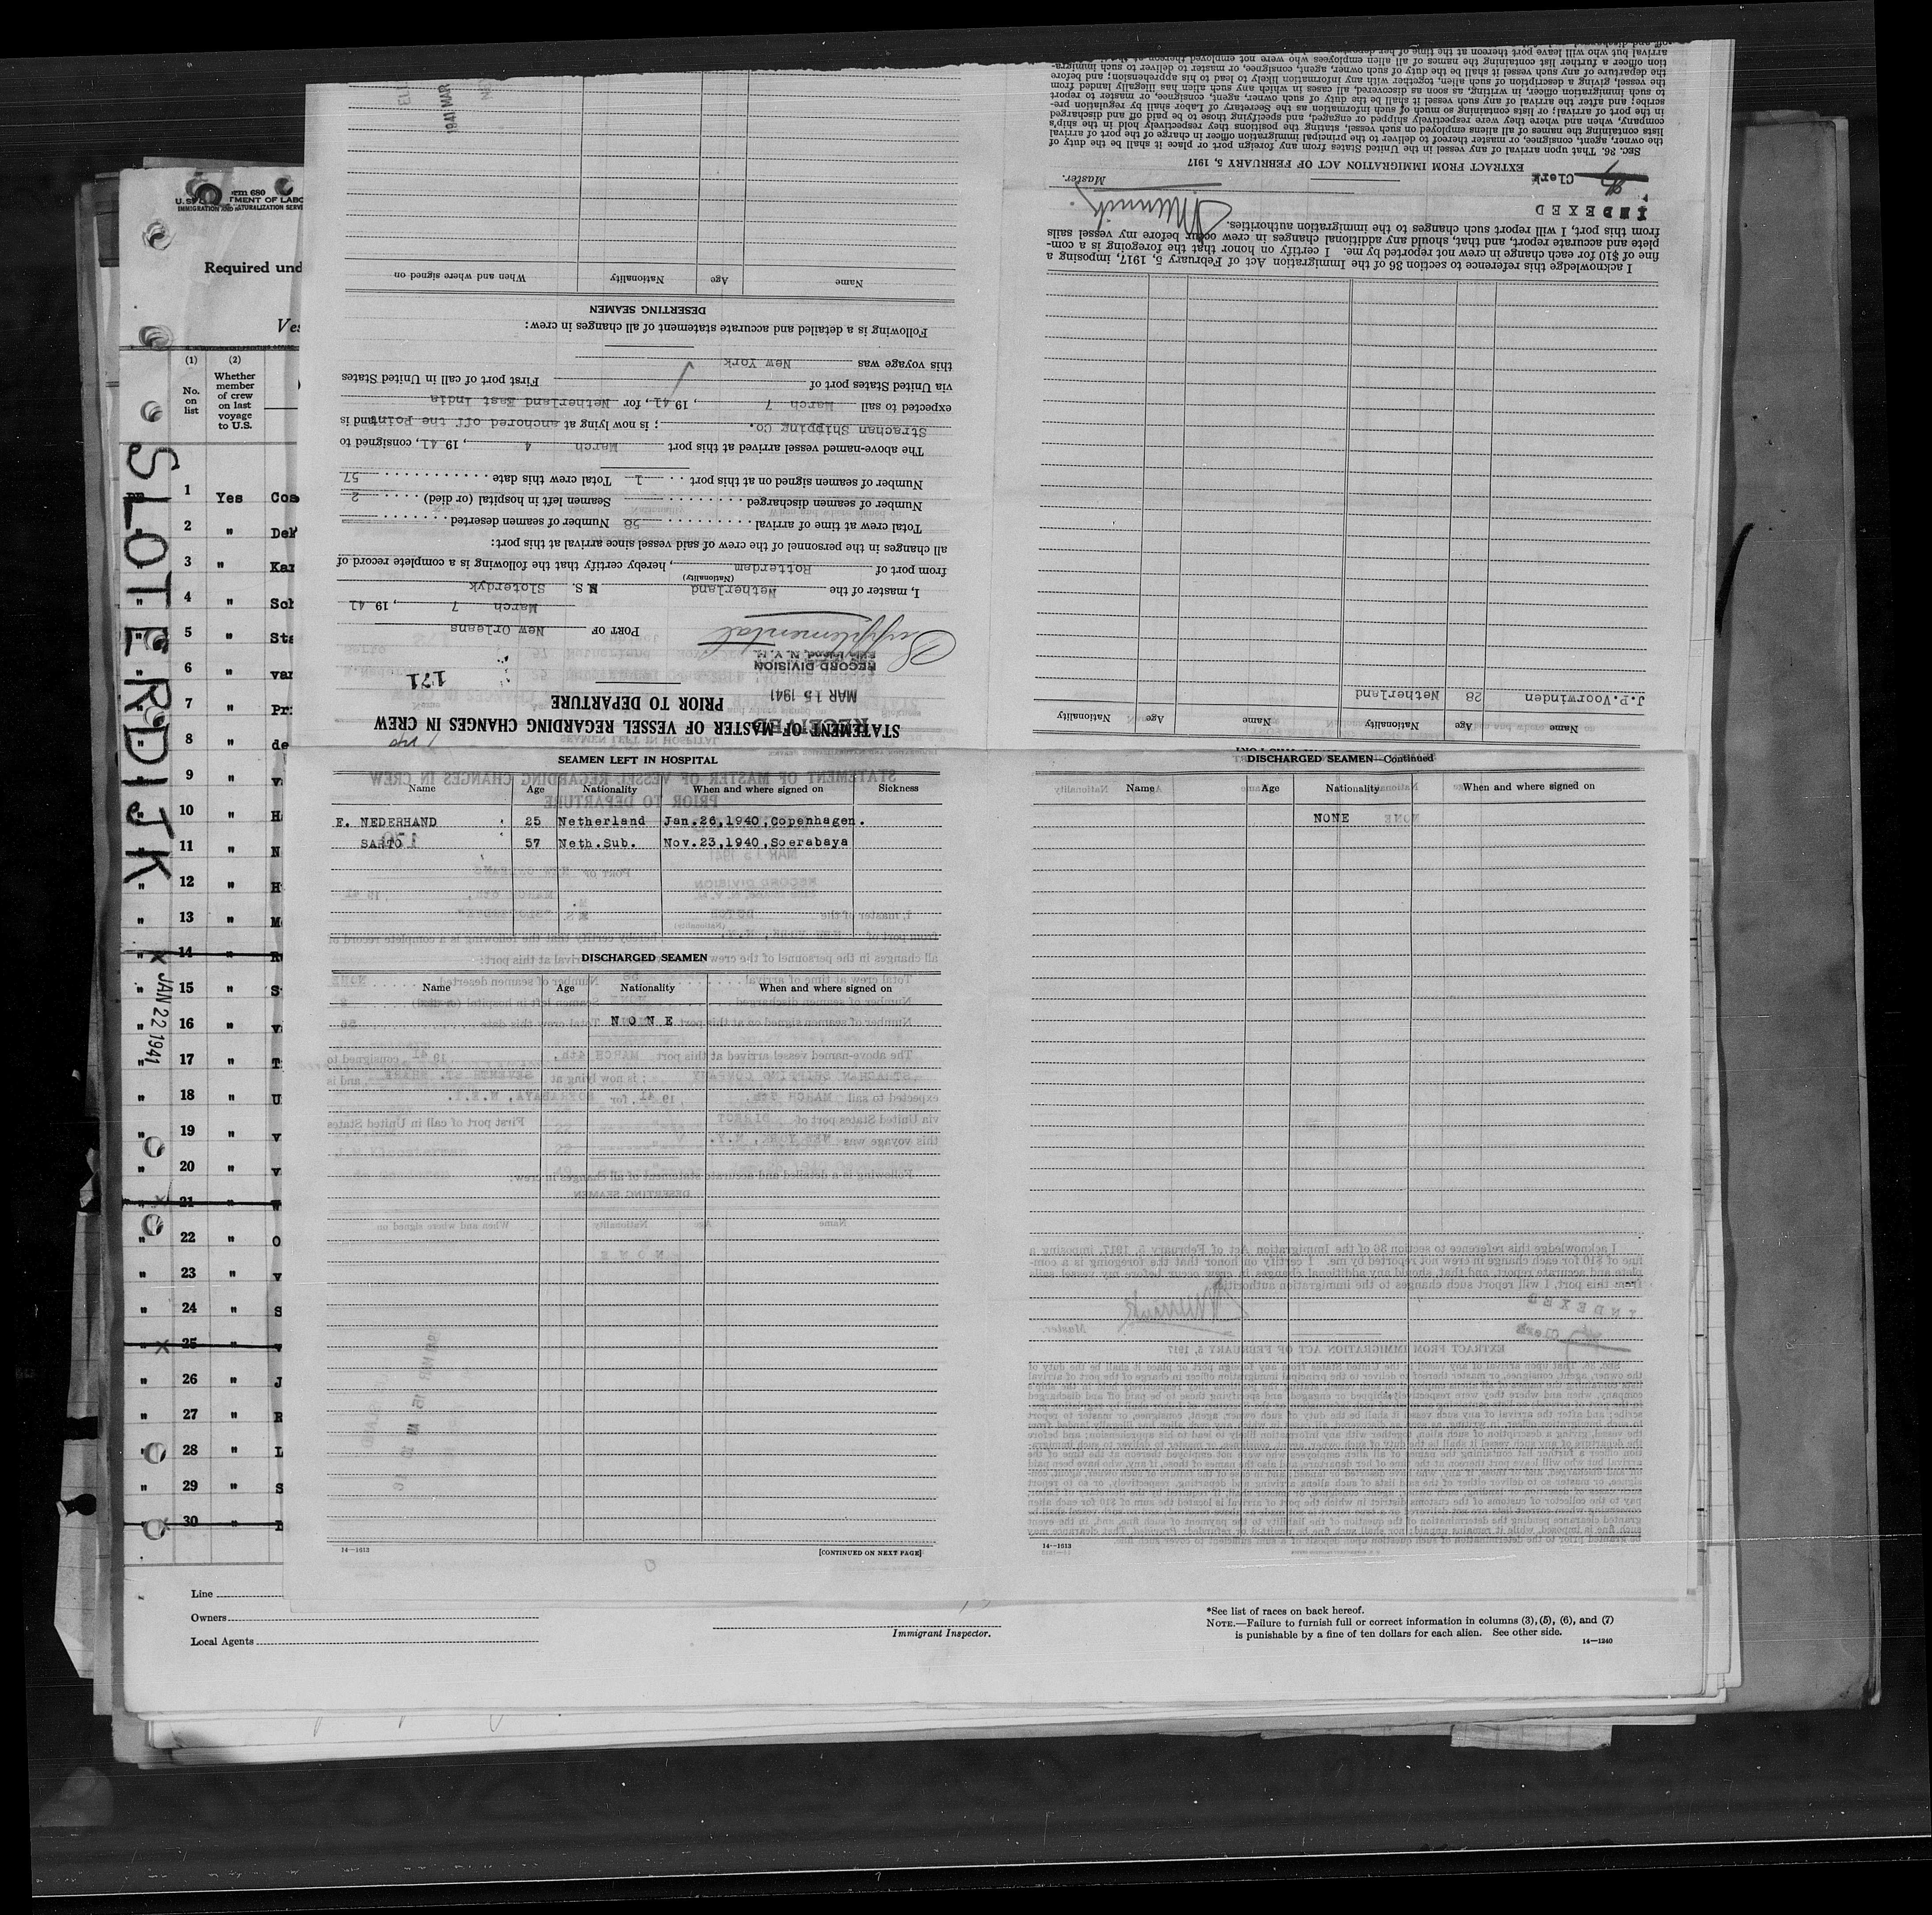 Form 680
U. S. DEPARTMENT OF LABOR
IMMIGRATION AND NATURALIZATION SERVICE
Required und
Ves
(1) (2)
No. on list
Whether member of crew on last voyage to U.S.
SLOTERDIJK
JAN 22 1941
1 Yes Cos
2 " Dek
3 " Kar
4 " Sch
5 " Sta
6 " van
7 " Pri
8 " de
9 " v
10 " H
11 " N
12 " H
13 " M
14 " R
15 " S
16 " v
17 " T
18 " U
19 " v
20 " v
21 "
22 " O
23 " v
24 " S
25 "
26 " J
27 " R
28 " L
29 " S
30 "
Line
Owners
Local Agents
Immigrant Inspector.
*See list of races on back hereof.
NOTE.—Failure to furnish full or correct information in columns (3), (5), (6), and (7)
is punishable by a fine of ten dollars for each alien. See other side.
14—1240
STATEMENT OF MASTER OF VESSEL REGARDING CHANGES IN CREW
PRIOR TO DEPARTURE
171
RECEIVED
MAR 15 1941
RECORD DIVISION
Supplemental
PORT OF New Orleans
March 7, 1941
I, master of the Netherland M S. Sloterdyk
(Nationality)
from port of Rotterdam, hereby certify that the following is a complete record of
all changes in the personnel of the crew of said vessel since arrival at this port:
Total crew at time of arrival 58 Number of seamen deserted
Number of seamen discharged Seamen left in hospital (or died) 2
Number of seamen signed on at this port 1 Total crew this date 57
The above-named vessel arrived at this port March 4, 1941, consigned to
Strachan Shipping Co.; is now lying at anchored off the Point and is
expected to sail March 7, 1941, for Netherland East India
via United States port of First port of call in United States
this voyage was New York
Following is a detailed and accurate statement of all changes in crew:
DESERTING SEAMEN
Name Age Nationality When and where signed on
1941 MAR
Name Age Nationality Name Age Nationality
J.P.Voorwinden 28 Netherland
I acknowledge this reference to section 36 of the Immigration Act of February 5, 1917, imposing a
fine of $10 for each change in crew not reported by me. I certify on honor that the foregoing is a com-
plete and accurate report, and that, should any additional changes in crew occur before my vessel sails
from this port, I will report such changes to the immigration authorities.
INDEXED
Clerk
Master.
EXTRACT FROM IMMIGRATION ACT OF FEBRUARY 5, 1917
SEC. 36. That upon arrival of any vessel in the United States from any foreign port or place it shall be the duty of
the owner, agent, consignee, or master thereof to deliver to the principal immigration officer in charge of the port of arrival
lists containing the names of all aliens employed on such vessel, stating the positions they respectively hold in the ship's
company, when and where they were respectively shipped or engaged, and specifying those to be paid off and discharged
in the port of arrival; or lists containing so much of such information as the Secretary of Labor shall by regulation pre-
scribe; and after the arrival of any such vessel it shall be the duty of such owner, agent, consignee, or master to report
to such immigration officer, in writing, as soon as discovered, all cases in which any such alien has illegally landed from
the vessel, giving a description of such alien, together with any information likely to lead to his apprehension; and before
the departure of any such vessel it shall be the duty of such owner, agent, consignee, or master to deliver to such immigra-
tion officer a further list containing the names of all alien employees who were not employed thereon at the
arrival but who will leave port thereon at the time of her
SEAMEN LEFT IN HOSPITAL
Name Age Nationality When and where signed on Sickness
E. NEDERHAND 25 Netherland Jan.26,1940,Copenhagen.
SARTO 57 Neth.Sub. Nov.23,1940,Soerabaya
DISCHARGED SEAMEN
Name Age Nationality When and where signed on
NONE
14—1613
[CONTINUED ON NEXT PAGE]
DISCHARGED SEAMEN—Continued
Name Age Nationality When and where signed on
NONE
14—1613